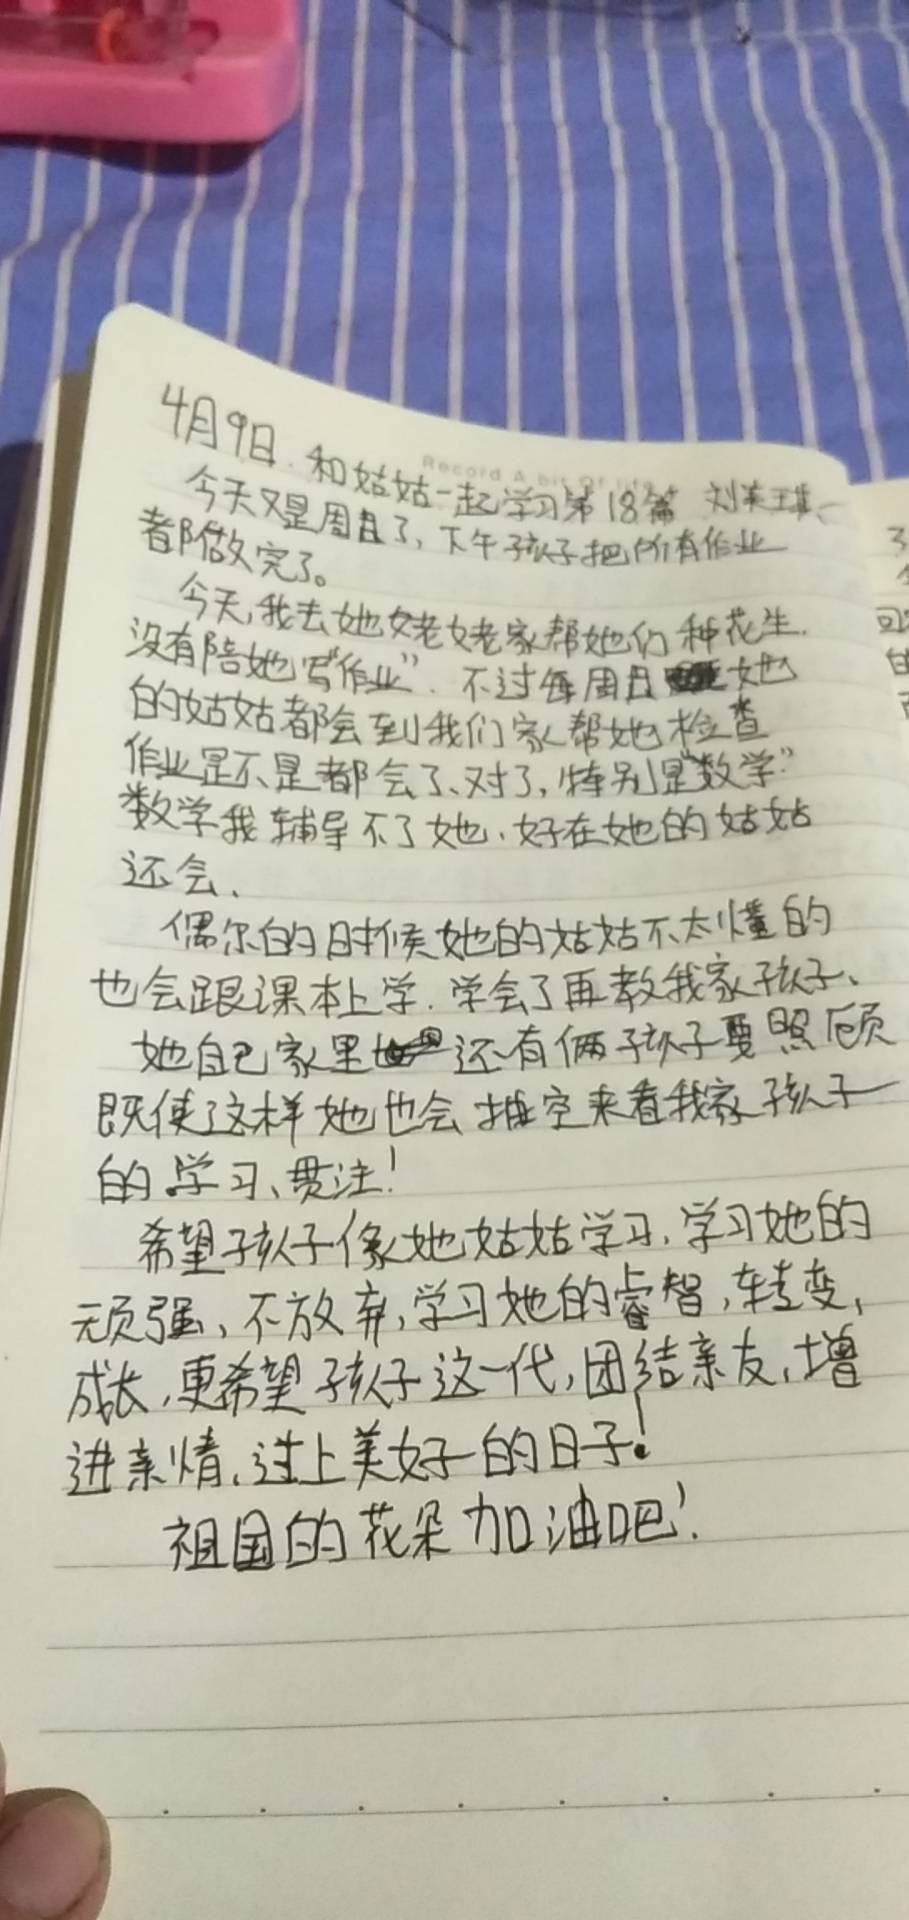 Record A bit Of
4月9日.和姑姑一起学习第18篇 刘英
今天又是周日了,下午孩子把所有作业
都做完了。
今天,我去她姥姥家帮她们种花生.
没有陪她写“作业”.不过每周日她
的姑姑都会到我们家帮她检查
作业是不是都会了、对了,特别是“数学”
数学我辅导不了她.好在她的姑姑
还会.
偶尔的时候她的姑姑不太懂的
也会跟课本上学.学会了再教我家孩子、
她自己家里还有俩孩子要照顾
既使这样她也会抽空来看我家孩子
的学习、贯注!
希望孩子像她姑姑学习,学习她的
顽强,不放弃,学习她的睿智,转变,
成长,更希望孩子这一代,团结亲友,增
进亲情,过上美好的日子!
祖国的花朵加油吧!